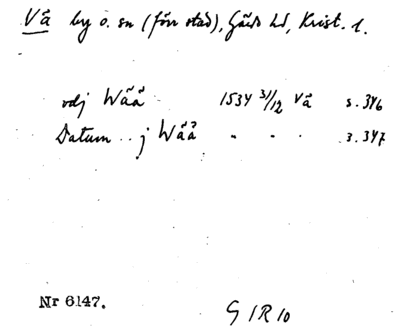 Vå by o. sn (förr stad), Gärds hd, Krist. l.
vdj Wåå 1534 31/12 Vå s. 346
Datum .. j Wåå " " " s. 347
Nr 6147.
G I R 10